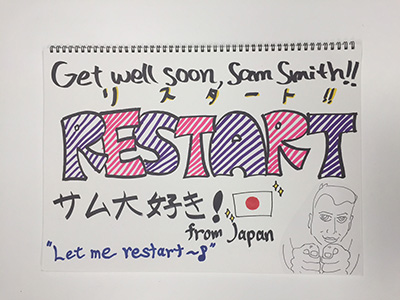 Get well soon, Sam Smith!!
リスタート!!
RESTART
サム大好き!
from Japan
"Let me restart~♪"